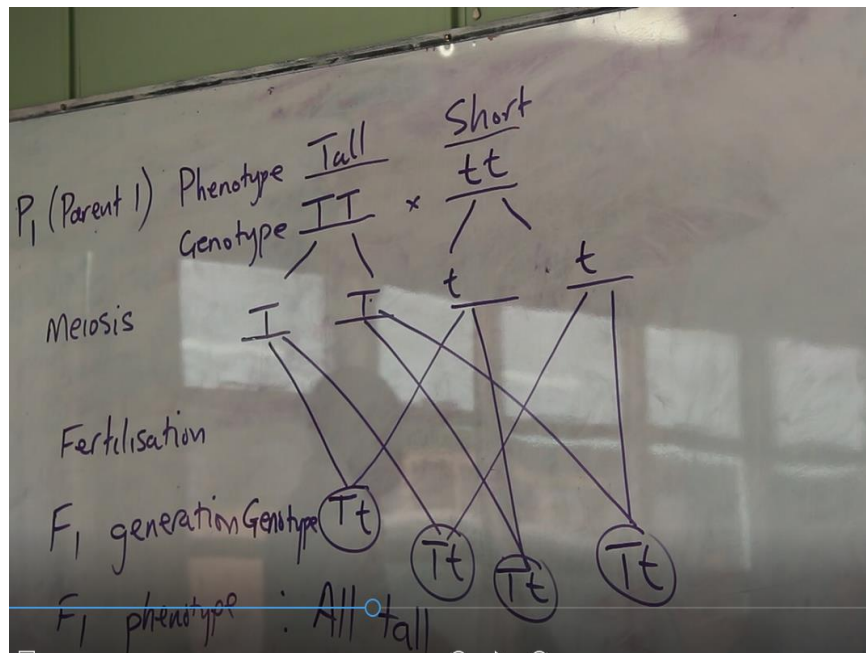 Tall Short
P1 (Parent 1) Phenotype
TT × tt
Genotype
T T t t
Meiosis
Fertilisation
F1 generation Genotype Tt Tt Tt Tt
F1 phenotype : All tall